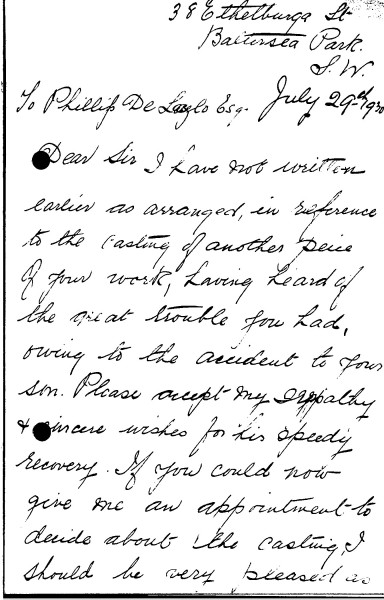 38 Ethelburga St
Battersea Park.
S.W.
To Phillip De Laszlo Esq. July 29th 1930
Dear Sir I have not written
earlier as arranged, in reference
to the casting of another peice
of your work, having heard of
the great trouble you had,
owing to the accident to your
son. Please accept my sympathy
& sincere wishes for his speedy
recovery. If you could now
give me an appointment to
decide about the casting, I
should be very pleased as